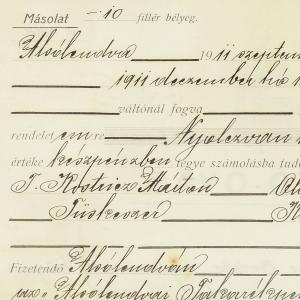 Másolat -10 fillér bélyeg.
Alsólendva 1911 szeptem
1911 deczember hó 1
váltónál fogva
rendelet em re Nyolczvan
értéke készpénzben tegye számolásba tud
T. Kostricz Márton
Tüskeszer
Fizetendő Alsólendván
Alsólendvai Takarékpé